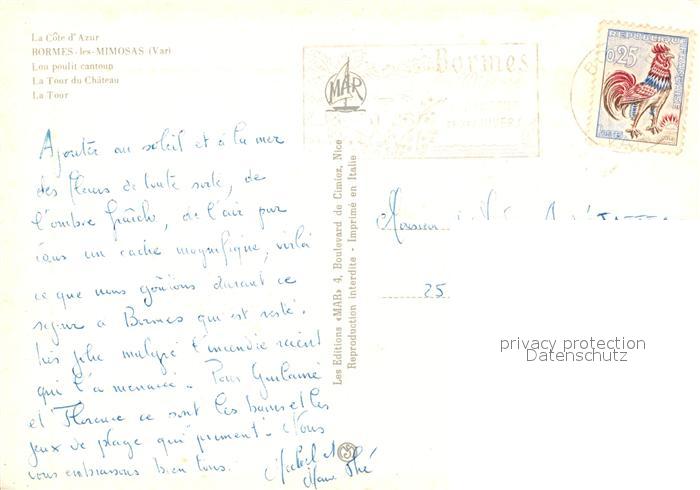 La Côte d'Azur
BORMES-les-MIMOSAS (Var)
Lou poulit cantoun
La Tour du Château
La Tour
MAR
Bormes
REPUBLIQUE FRANÇAISE
0,25
Ajoutée au soleil et à la mer
des fleurs de toute sorte, de
l'ombre fraîche, de l'air pur
dans un cadre magnifique, voilà
ce que nous goûtons durant ce
séjour à Bormes qui est resté
très joli malgré l'incendie récent
qui l'a menacé. Pour Guilaine
et Florence ce sont les bains et les
jeux de plage qui priment. Nous
vous embrassons bien tous.
Les Editions «MAR» 4, Boulevard de Cimiez, Nice
Reproduction interdite - Imprimé en Italie
Monsieur
25
privacy protection
Datenschutz